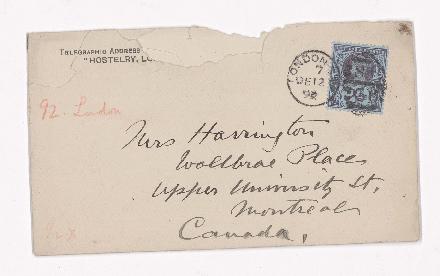 TELEGRAPHIC ADDRESS
"HOSTELRY, LO
LONDON
7
DE 12
92
92. London
Mrs Harrington
Wallbrae Place
Upper University St,
Montreal
Canada,